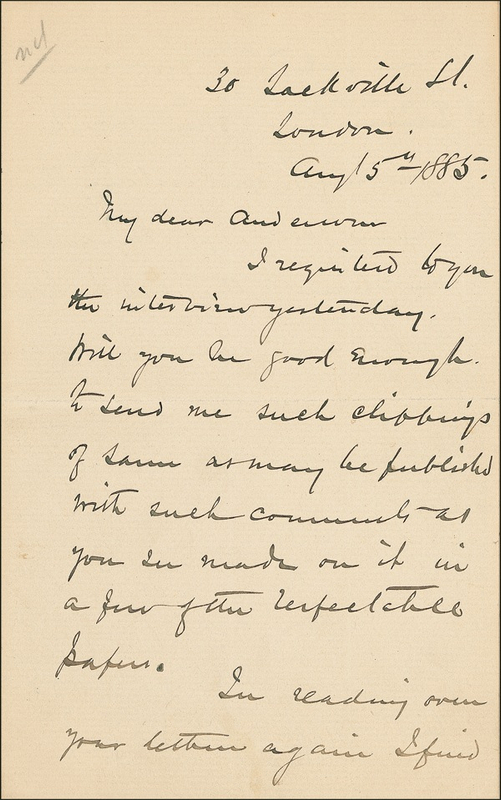 30 Sackville St.
London.
Aug 5th 1885.
My dear Anderson
I regretted to you
the interview yesterday.
Will you be good enough
to send me such clippings
of same as may be published
with such comments as
you see made on it in
a few of the respectable
papers.
In reading over
your letter again I find